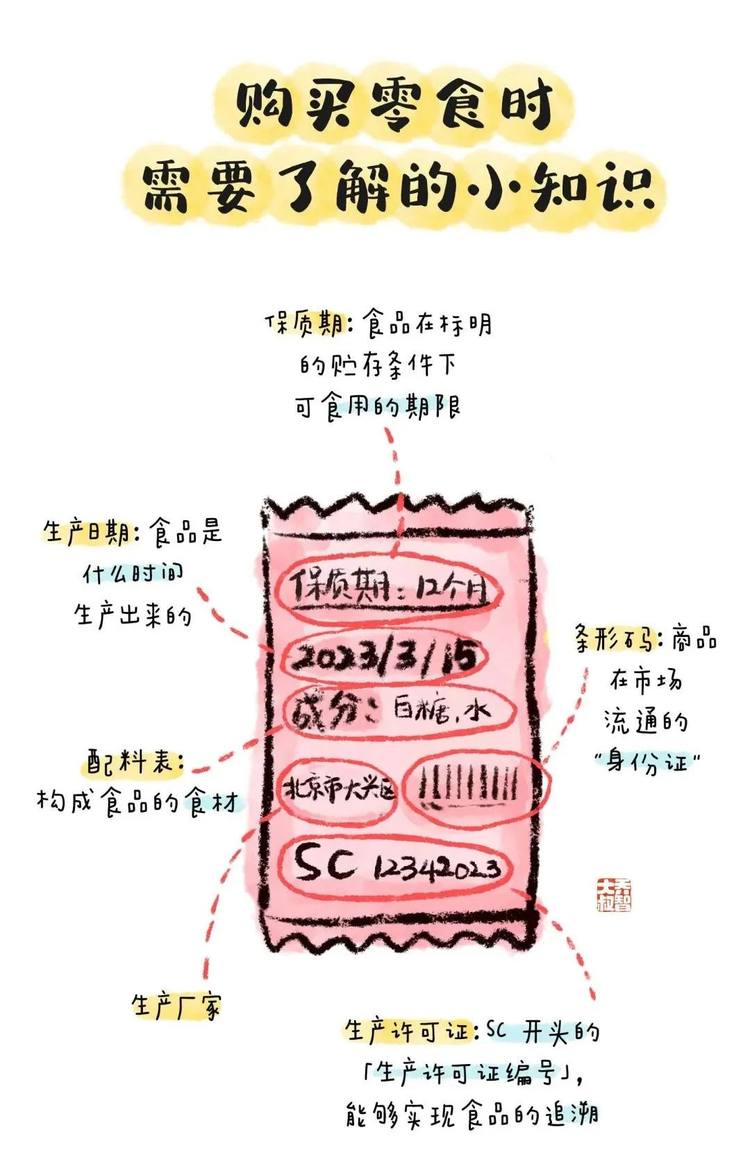 购买零食时
需要了解的小知识
保质期:食品在标明
的贮存条件下
可食用的期限
生产日期:食品是
什么时间
生产出来的
保质期:12个月
2023/3/15
成分:白糖,水
条形码:商品
在市场
流通的
"身份证"
配料表:
构成食品的食材
北京市大兴区
SC 12342023
生产厂家
生产许可证:SC 开头的
「生产许可证编号」,
能够实现食品的追溯